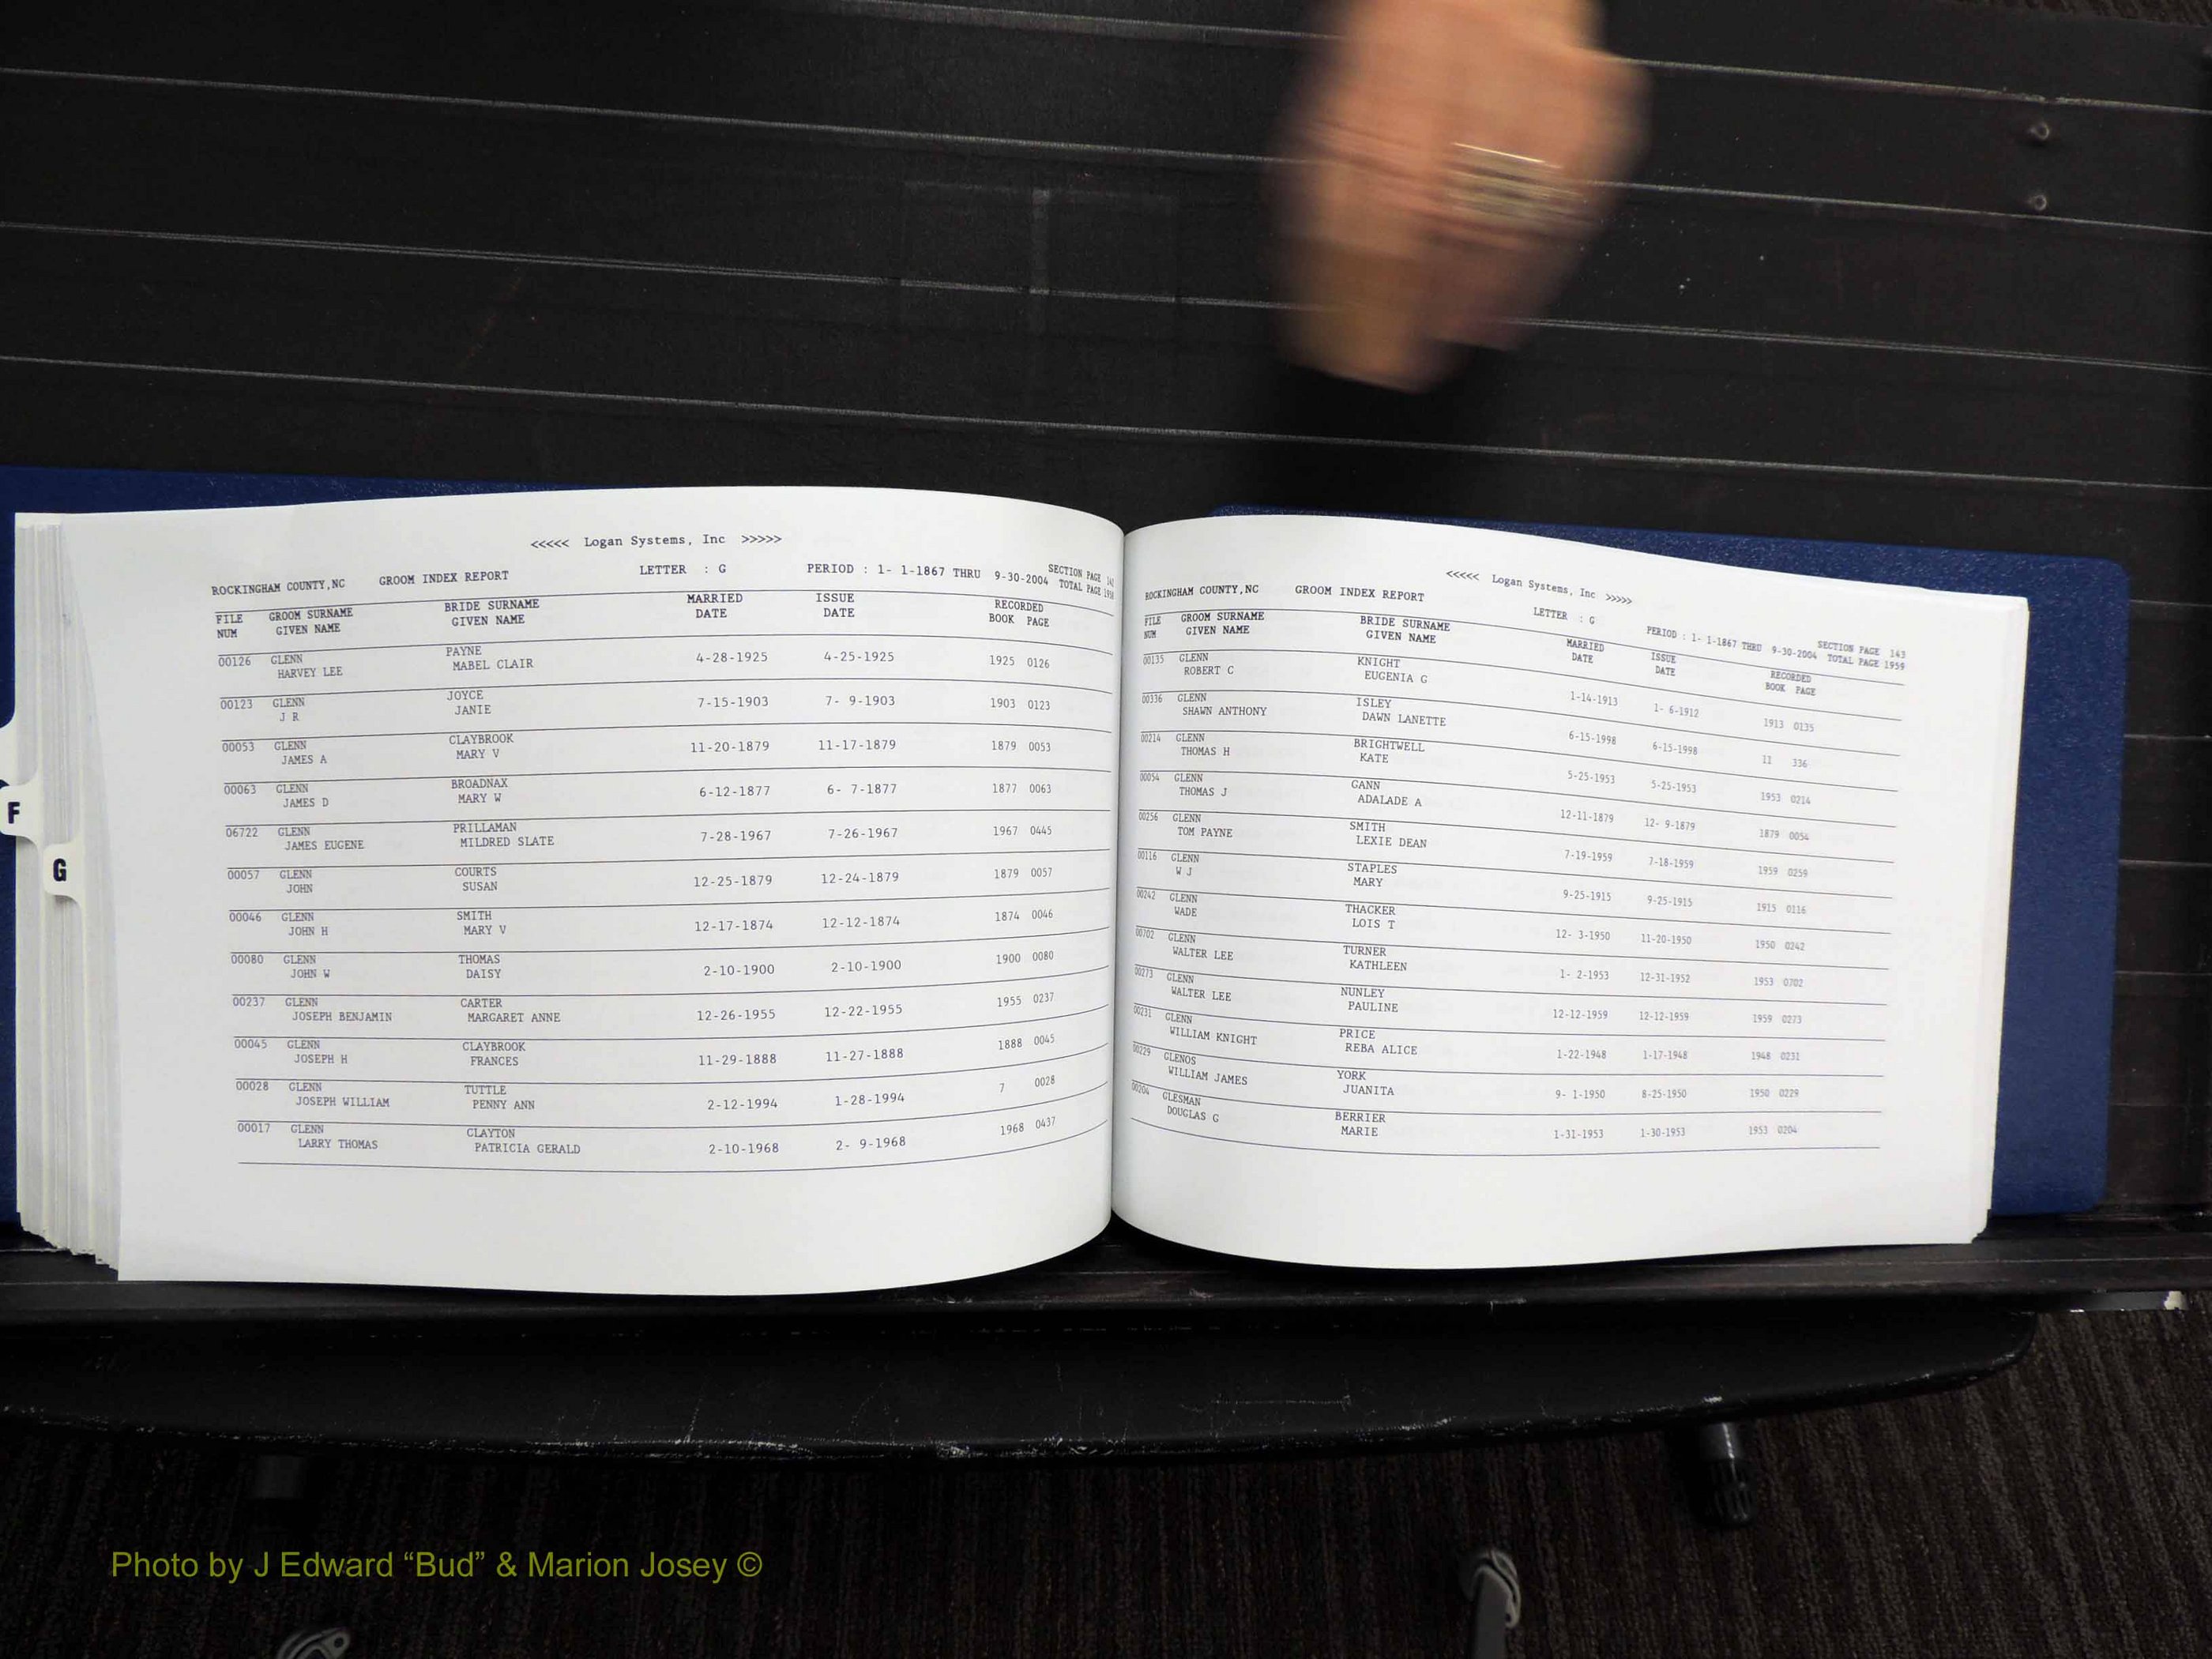 <<<<< Logan Systems, Inc >>>>>
ROCKINGHAM COUNTY,NC GROOM INDEX REPORT LETTER : G PERIOD : 1- 1-1867 THRU 9-30-2004 SECTION PAGE
TOTAL PAGE 1958
FILE GROOM SURNAME BRIDE SURNAME MARRIED ISSUE RECORDED
NUM GIVEN NAME GIVEN NAME DATE DATE BOOK PAGE
00126 GLENN PAYNE 4-28-1925 4-25-1925 1925 0126
HARVEY LEE MABEL CLAIR
00123 GLENN JOYCE 7-15-1903 7- 9-1903 1903 0123
J R JANIE
00053 GLENN CLAYBROOK 11-20-1879 11-17-1879 1879 0053
JAMES A MARY V
00063 GLENN BROADNAX 6-12-1877 6- 7-1877 1877 0063
JAMES D MARY W
06722 GLENN PRILLAMAN 7-28-1967 7-26-1967 1967 0445
JAMES EUGENE MILDRED SLATE
00057 GLENN COURTS 12-25-1879 12-24-1879 1879 0057
JOHN SUSAN
00046 GLENN SMITH 12-17-1874 12-12-1874 1874 0046
JOHN H MARY V
00080 GLENN THOMAS 2-10-1900 2-10-1900 1900 0080
JOHN W DAISY
00237 GLENN CARTER 12-26-1955 12-22-1955 1955 0237
JOSEPH BENJAMIN MARGARET ANNE
00045 GLENN CLAYBROOK 11-29-1888 11-27-1888 1888 0045
JOSEPH H FRANCES
00028 GLENN TUTTLE 2-12-1994 1-28-1994 7 0028
JOSEPH WILLIAM PENNY ANN
00017 GLENN CLAYTON 2-10-1968 2- 9-1968 1968 0437
LARRY THOMAS PATRICIA GERALD
F
G
<<<<< Logan Systems, Inc >>>>>
ROCKINGHAM COUNTY,NC GROOM INDEX REPORT LETTER : G PERIOD : 1- 1-1867 THRU 9-30-2004 SECTION PAGE 143
TOTAL PAGE 1959
FILE GROOM SURNAME BRIDE SURNAME MARRIED ISSUE RECORDED
NUM GIVEN NAME GIVEN NAME DATE DATE BOOK PAGE
00135 GLENN KNIGHT 1-14-1913 1- 6-1912 1913 0135
ROBERT C EUGENIA G
00336 GLENN ISLEY 6-15-1998 6-15-1998 11 336
SHAWN ANTHONY DAWN LANETTE
00214 GLENN BRIGHTWELL 5-25-1953 5-25-1953 1953 0214
THOMAS H KATE
00054 GLENN GANN 12-11-1879 12- 9-1879 1879 0054
THOMAS J ADALADE A
00256 GLENN SMITH 7-19-1959 7-18-1959 1959 0259
TOM PAYNE LEXIE DEAN
00116 GLENN STAPLES 9-25-1915 9-25-1915 1915 0116
W J MARY
00242 GLENN THACKER 12- 3-1950 11-20-1950 1950 0242
WADE LOIS T
00702 GLENN TURNER 1- 2-1953 12-31-1952 1953 0702
WALTER LEE KATHLEEN
00273 GLENN NUNLEY 12-12-1959 12-12-1959 1959 0273
WALTER LEE PAULINE
00231 GLENN PRICE 1-22-1948 1-17-1948 1948 0231
WILLIAM KNIGHT REBA ALICE
00229 GLENOS YORK 9- 1-1950 8-25-1950 1950 0229
WILLIAM JAMES JUANITA
00204 GLESMAN BERRIER 1-31-1953 1-30-1953 1953 0204
DOUGLAS G MARIE
Photo by J Edward “Bud” & Marion Josey ©